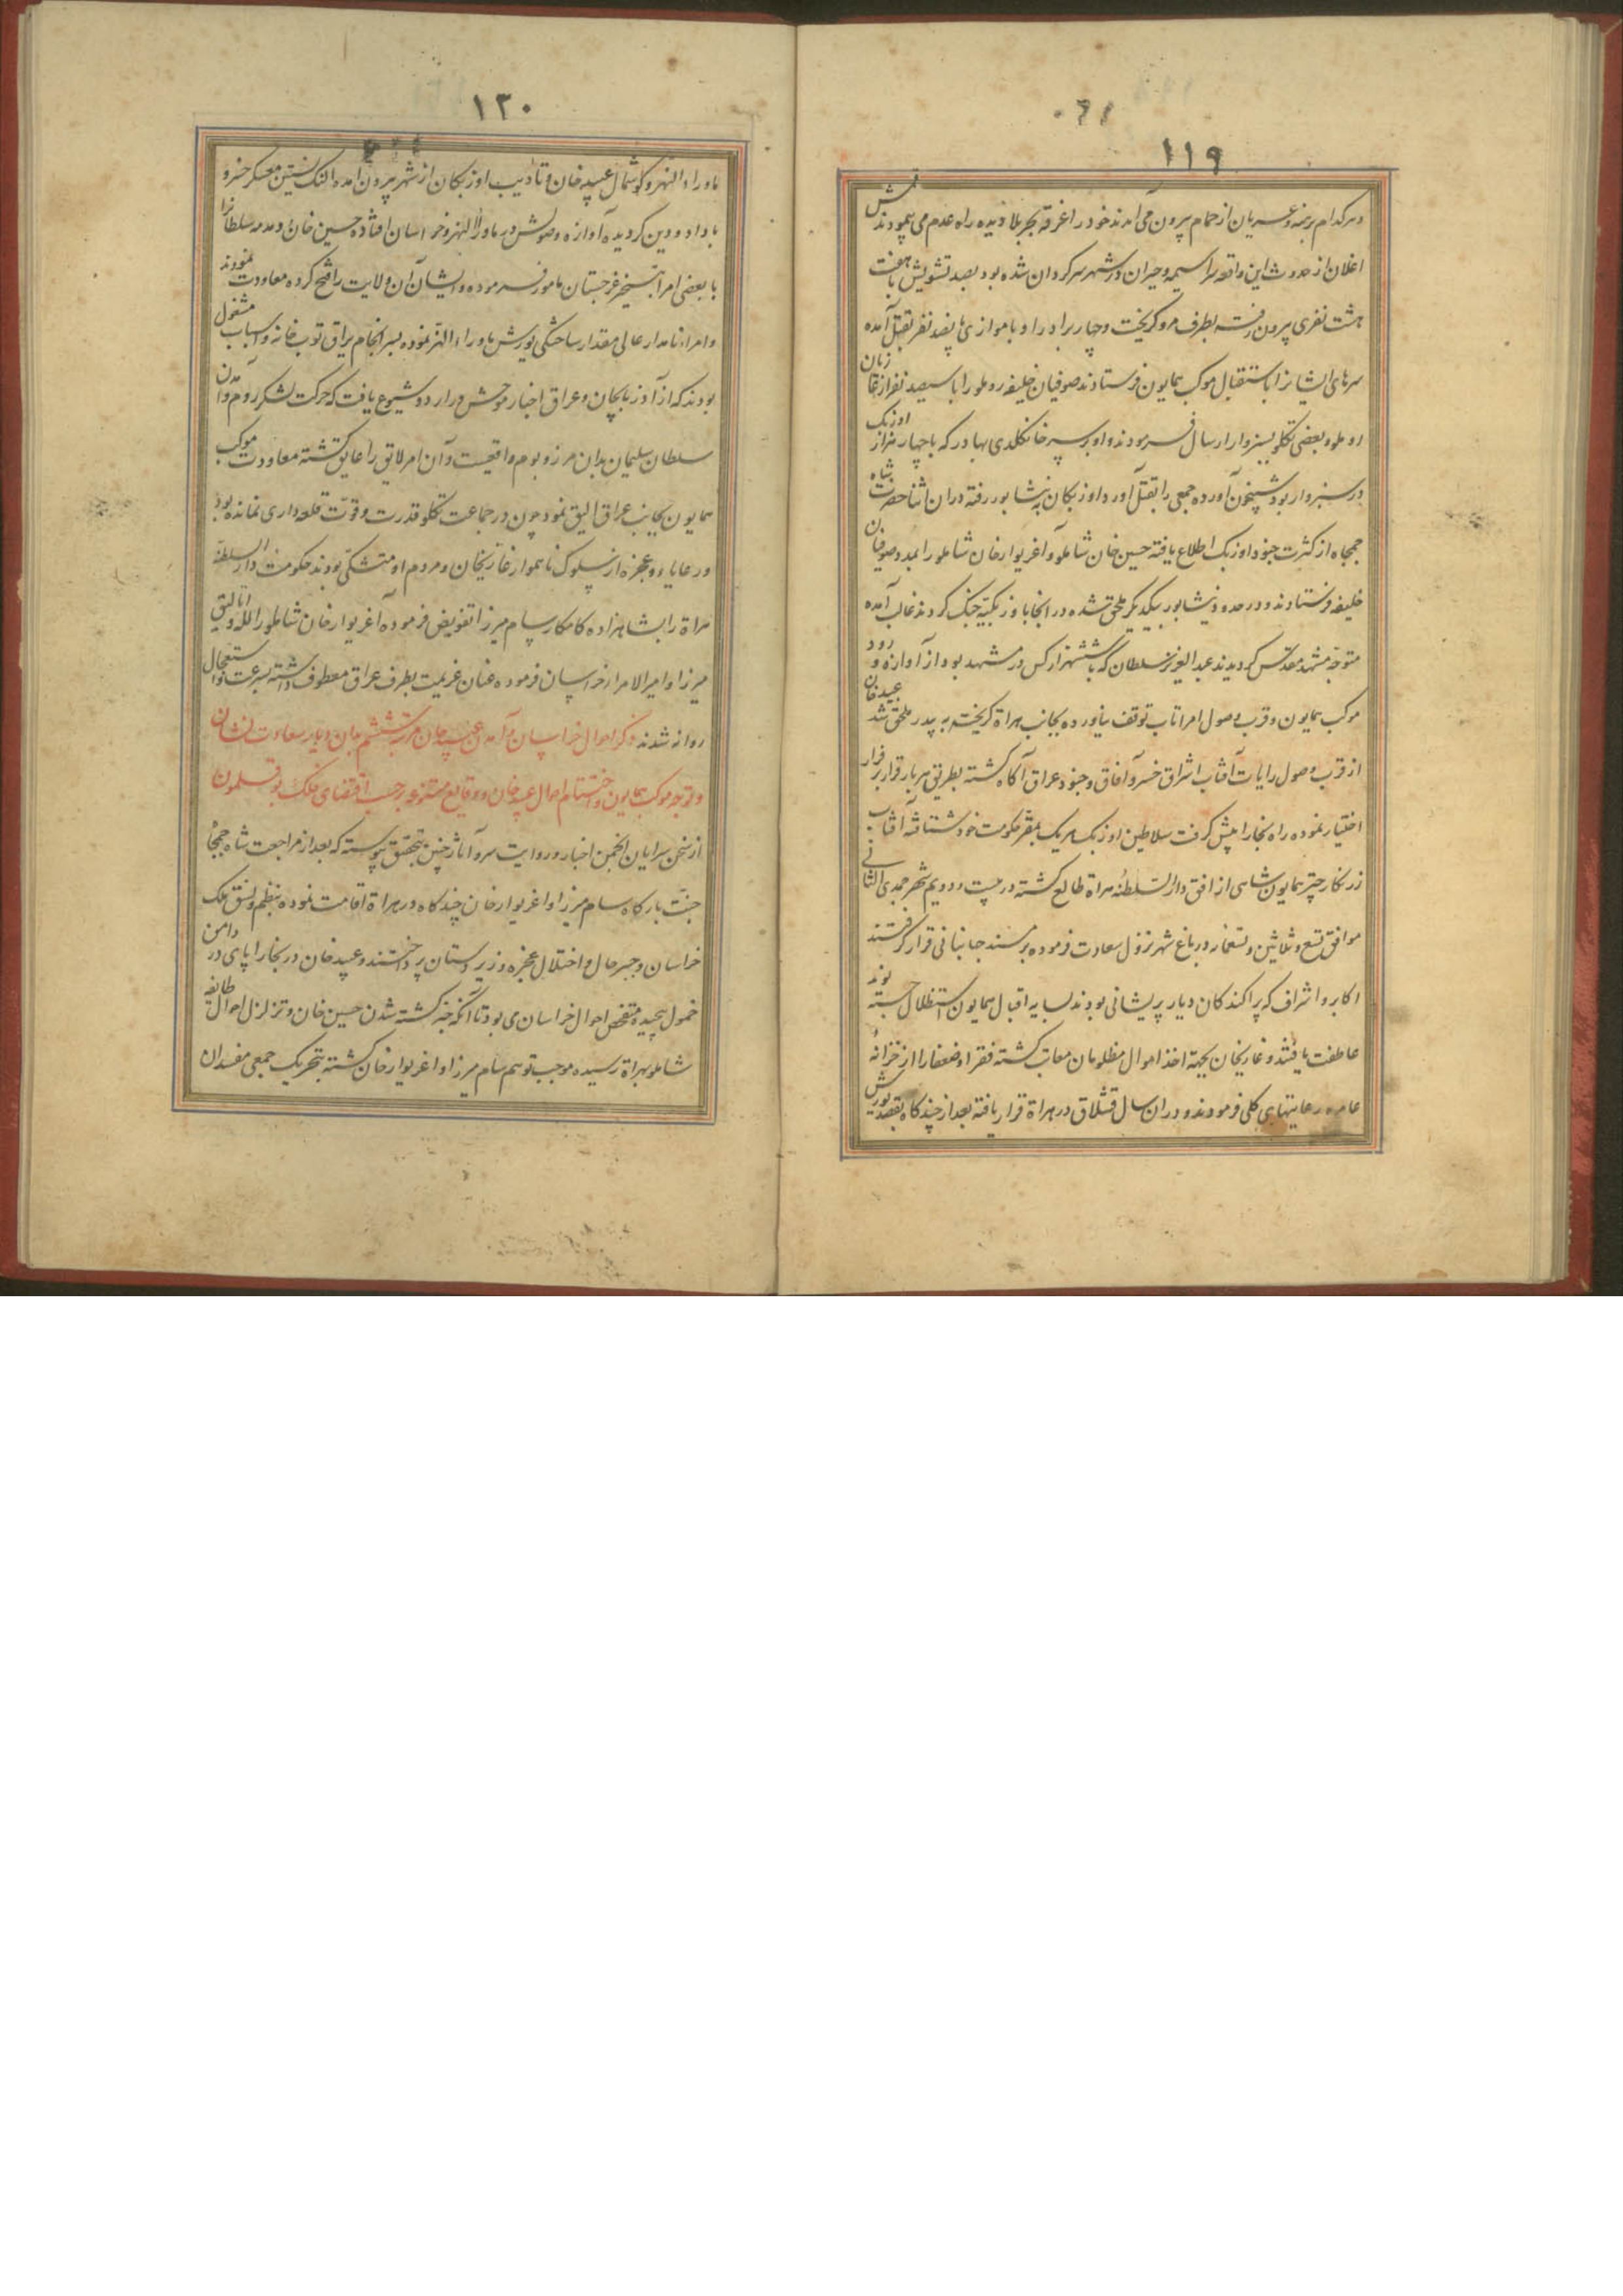 ۱۱۹
و هر کدام برهنه و عریان از حمام بیرون می آمدند خود را غرقه بحر بلا دیده راه عدم می پیمودند قمش
اغلان از حدوث این واقعه سراسیمه و حیران در شهر سرکردان شده بود بصد تشویش با هفت
هشت نفری بیرون رفته بطرف مرو کریخت و چهار برادر او با موازی پانصد نفر بقتل آمده
سرهای ایشانرا باستقبال موکب همایون فرستادند صوفیان خلیفه روملو را با سیصد نفر از غازیان
روملو و بعضی تکلو بسبزوار ارسال فرمودند و او بر سر خانکلدی بهادر که با چهار هزار اوزبک
در سبزوار بود شبیخون آورده جمعی را بقتل آورد و اوزبکان به نیشابور رفته در ان اثنا حضرت شاه
جمجاه از کثرت جنود اوزبک اطلاع یافته حسین خان شاملو و آغزیوار خان شاملو را بمدد صوفیان
خلیفه فرستادند و در حدود نیشابور بیکدیکر ملحق شده در انجا با اوزبکیه جنک کردند غالب آمده
متوجه مشهد مقدس کردیدند عبد العزیز سلطان که با ششهزار کس در مشهد بود از آوازه ورود
موکب همایون و قرب وصول امرا تاب توقف نیاورده بجانب هراة کریخته به پدر ملحق شد عبید خان
از قرب وصول رایات آفتاب اشراق خسرو آفاق و جنود عراق آکاه کشته بطریق هر بار قرار بر فرار
اختیار نموده راه بخارا پیش کرفت سلاطین اوزبک هر یک بمقر حکومت خود شتافته آفتاب
زرنکار چتر همایون شاهی از افق دار السلطنه هراة طالع کشته در بیست و دویم شهر جمدی الثانی
موافق تسع و ثلاثین و تسعمائه در باغ شهر نزول سعادت فرموده بر مسند جهانبانی قرار کرفتند
اکابر و اشراف که پراکندکان دیار پریشانی بودند بسایه اقبال همایون استظلال جسته بودند
عاطفت یافتند و غازیخان بجهة اخذ اموال مظلومان معاتب کشته فقرا و ضعفا را از خزانهٔ
عامره رعایتهای کلی فرمودند و در ان سال قشلاق در هراة قرار یافته بعد از چند کاه بقصد یورش
۱۲۰
ماوراء النهر و کوشمال عبید خان و تادیب اوزبکان از شهر بیرون آمده النک نشین معسکر خسرو
با داد و دین کردیده آوازه وصولش در ماوراء النهر و خراسان افتاده حسین خان و سلطانرا
با بعضی امرا بتسخیر غرجستان مامور فرموده و ایشان آن ولایت را فتح کرده معاودت نمودند
و امراء نامدار عالی مقدار ساختکی یورش ماوراء النهر نموده بسرانجام یراق توپ خانه و اسباب مشغول
بودند که از آذربایجان و عراق اخبار موحش در اردو شیوع یافت که حرکت لشکر روم و آمدن
سلطان سلیمان بدان مرز و بوم واقعیست و آن امر لایق را عایق کشته معاودت موکب
همایون بجانب عراق الیق نمود چون در جماعت تکلو قدرت و قوت قلعه داری نمانده بود
و رعایا و عجزه از سلوک ناهموار غازیخان و مردم او متشکی بودند حکومت دار السلطنه
هراة را بشاهزاده کامکار سام میرزا تفویض فرموده آغزیوار خان شاملو را لله و اتالیق
میرزا و امیر الامراء خراسان فرموده عنان عزیمت بطرف عراق معطوف داشته بسرعت و استعجال
روانه شدند ذکر احوال خراسان و آمدن عبید خان مرتبه ششم بدان دیار سعادت نشان
و توجه موکب همایون و اختتام احوال عبید خان و وقایع متنوعه بر حسب اقتضای فلک بوقلمون
از سخن سرایان انجمن اخبار و روایت سرو آثار چنین بتحقق پیوسته که بعد از مراجعت شاه جمجاه
جنت بارکاه سام میرزا و اغزیوار خان چند کاه در هراة اقامت نموده بنظم و نسق ملک
خراسان و جبر حال و اختلال عجزه و زیر دستان پرداختند و عبید خان در بخارا پای در دامن
خمول پیچیده متفحص احوال خراسان می بود تا آنکه خبر کشته شدن حسین خان و تزلزل احوال طایفه
شاملو بهراة رسیده موجب توهم سام میرزا و اغزیوار خان کشته بتحریک جمعی مفسدان